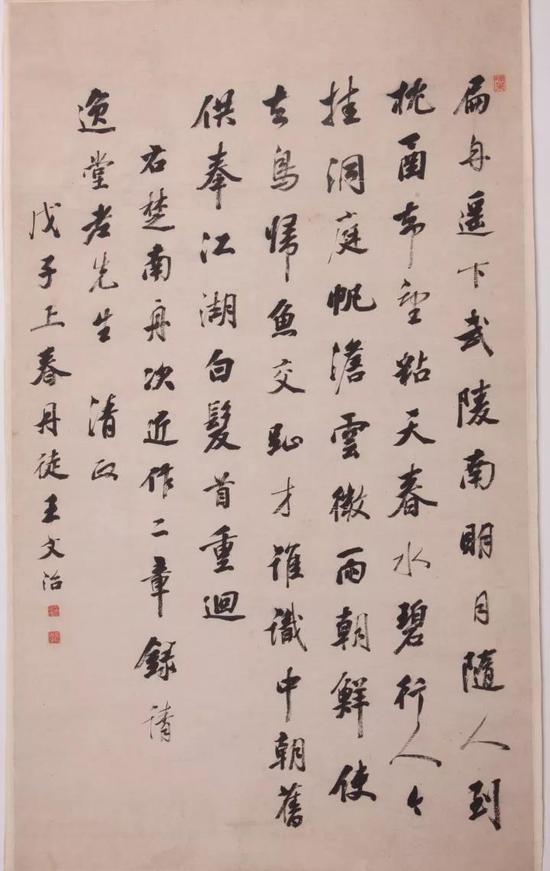 扁舟遥下武陵南明月隨人到
枕函望粘天春水碧行人
挂洞庭帆澹雲微雨朝鮮使
去鳥歸魚交趾才誰識中朝舊
供奉江湖白髮首重迴
右楚南舟次近作二章錄請
逸堂老先生 清政
戊子上春丹徒王文治